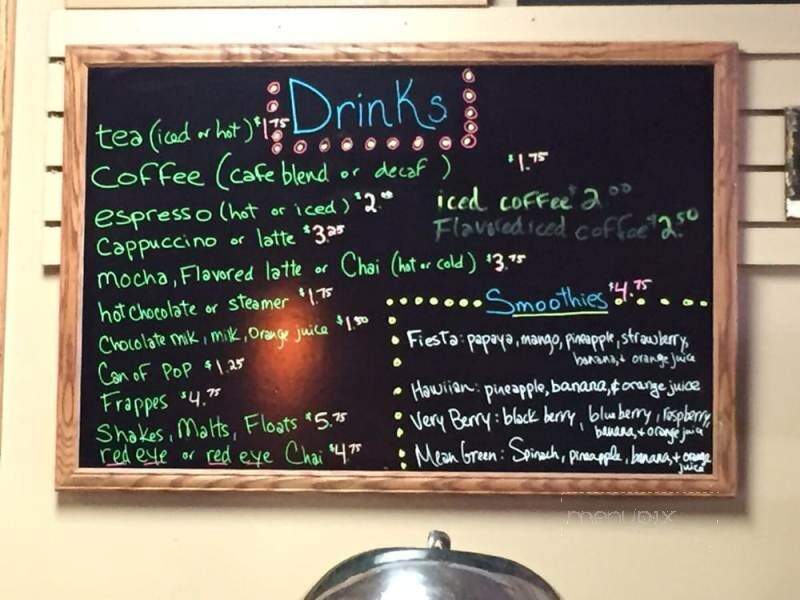 Drinks
tea (iced or hot) $1.75
Coffee (cafe blend or decaf) $1.75
espresso (hot or iced) $2.00
iced coffee $2.00
Cappuccino or latte $3.25
Flavored iced coffee $2.50
Mocha, Flavored latte or Chai (hot or cold) $3.75
hot chocolate or steamer $1.75
Chocolate milk, milk, Orange juice $1.50
Can of Pop $1.25
Frappes $4.75
Shakes, Malts, Floats $5.75
red eye or red eye Chai $4.75
Smoothies $4.75
Fiesta: papaya, mango, pineapple, strawberry,
banana, + orange juice
Hawiian: pineapple, banana, & orange juice
Very Berry: black berry, blueberry, raspberry,
banana, + orange juice
Mean Green: Spinach, pineapple, banana, + orange
juice
menupix